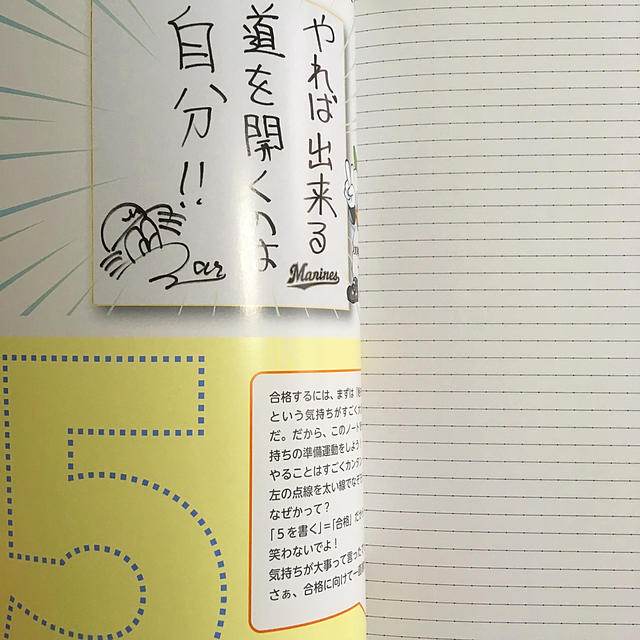 やれば出来る
道を開くのは
自分!!
Marines
5
合格するには、まずは
という気持ちがすごく
だ。だから、このノート
持ちの準備運動をしよう
やることはすごくカンタン
左の点線を太い線でなぞ
なぜかって？
「5を書く」=「合格」だ
笑わないでよ！
気持ちが大事って言った
さぁ、合格に向けて一直